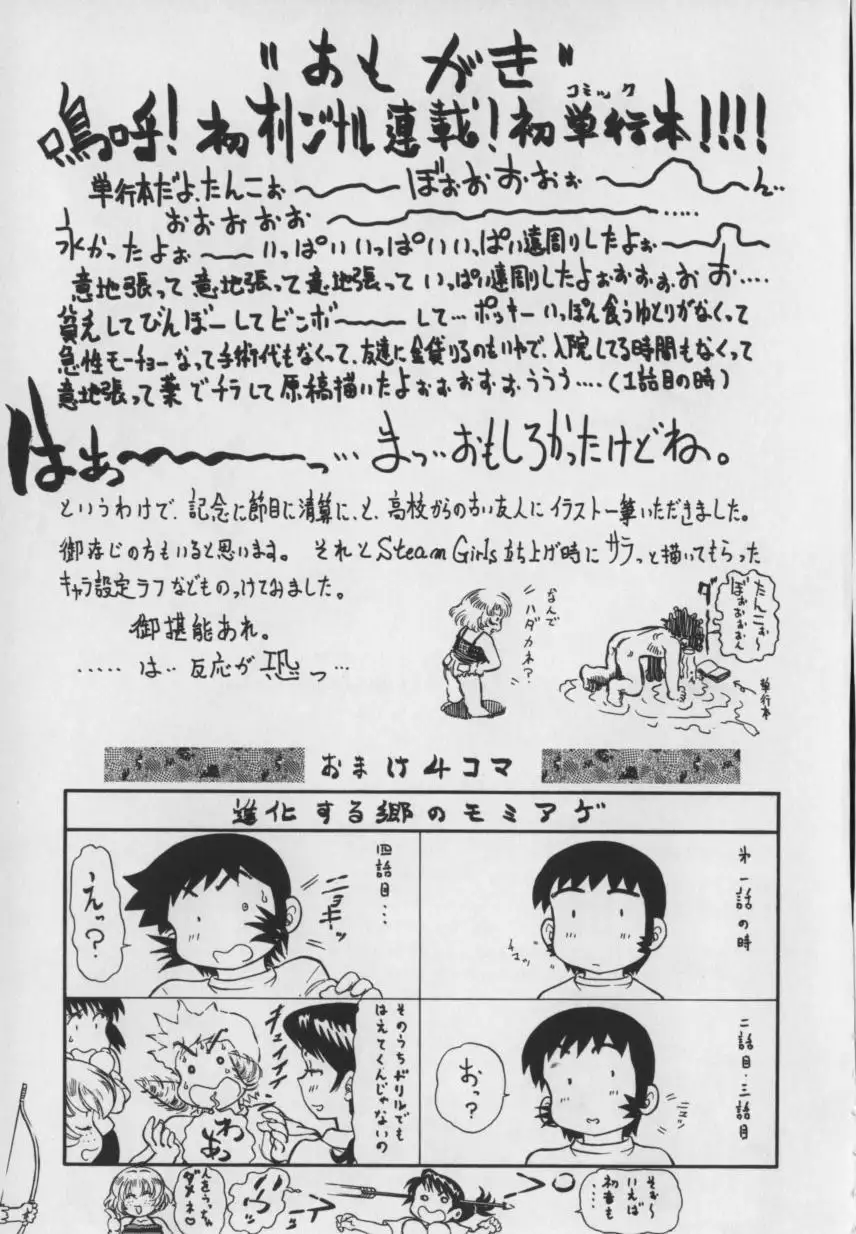 "あもがき"
嗚呼!初オリジナル連載!初単行本!!!!
コミック
単行本だよ、たんこぉ〜ぼぉぉおおぉぉ〜ん‥
おおおおお〜‥‥‥
永かったよぉ〜いっぱいいっぱいいっぱい遠周りしたよぉ〜
意地張って意地張って意地張っていっぱい遠周りしたよぉおおぉおお‥‥
貧乏してびんぼーしてビンボ〜して…ポッキーいっぽん食うゆとりがなくって
急性モーチョーなって手術代もなくって、友達に金貸りるのもいやで、入院してる時間もなくって
意地張って薬でチラして原稿描いたよぉおおおぉううう‥‥(1話目の時)
はあっ〜〜っ…まっ…おもしろかったけどね。
というわけで、記念に節目に清算に、と、高校からの古い友人にイラスト一筆いただきました。
御存じの方もいると思います。それとSteam Girls立ち上げ時にサラっと描いてもらった
キャラ設定ラフなどものっけてみました。
御堪能あれ。
‥‥‥は‥反応が恐っ…
なんで
ハダカネ?
たんこぉ〜
ぼぉぉぉぉん
ダー
単行本
おまけ4コマ
進化する郷のモミアゲ
第一話の時
チョッ
二話目・三話目
おっ?
四話目…
ニョキッ
えっ?
そのうちドリルでも
はえてくんじゃないの
キュイイイイ
わあっ
そぉ〜
いえば
初番も
‥‥
ハウッ
人をうっちゃ
ダメネ♡